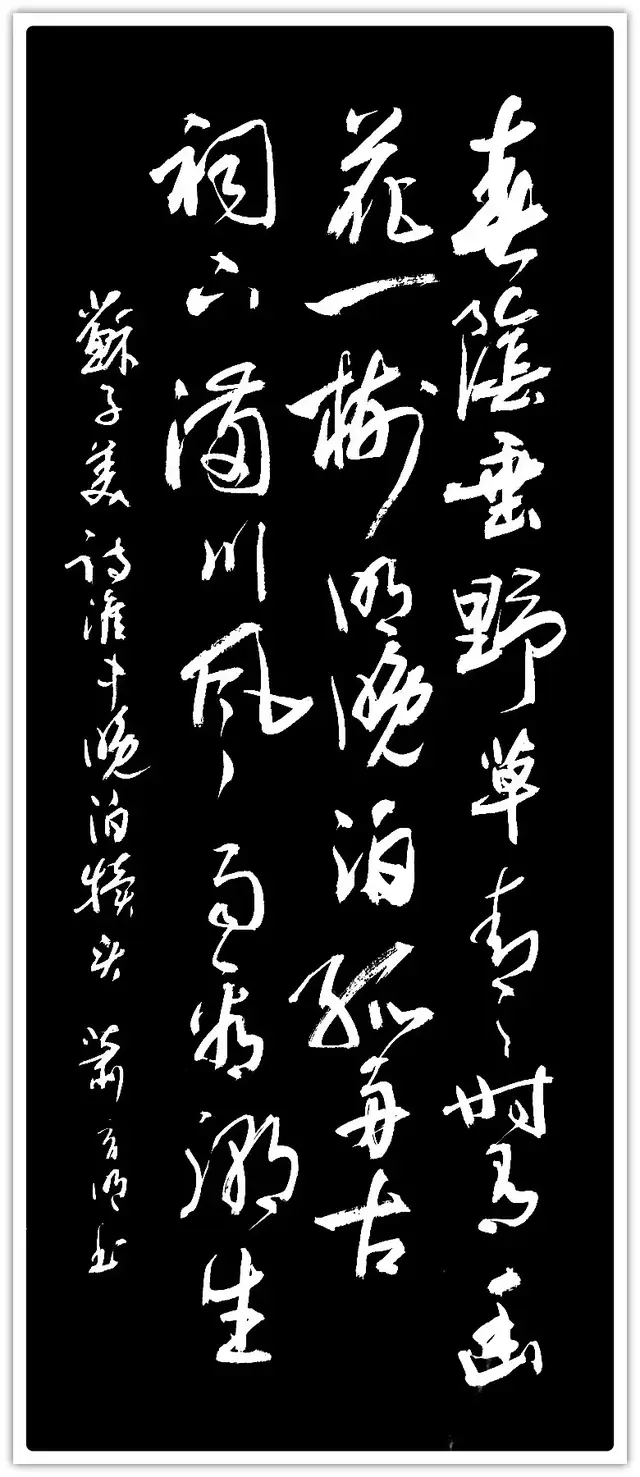 春陰垂野草青々时有幽
花一樹明晚泊孤舟古
祠下滿川風雨看潮生
蘇子美诗淮中晚泊犢头 蕭明书